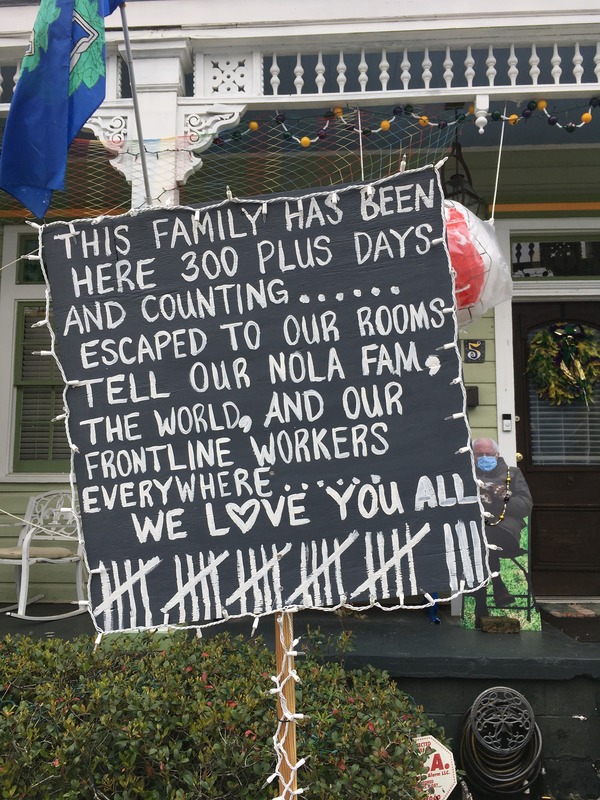 THIS FAMILY HAS BEEN
HERE 300 PLUS DAYS
AND COUNTING......
ESCAPED TO OUR ROOMS
TELL OUR NOLA FAM,
THE WORLD, AND OUR
FRONTLINE WORKERS
EVERYWHERE......
WE L♡VE YOU ALL
5
A.
Alarm LLC.